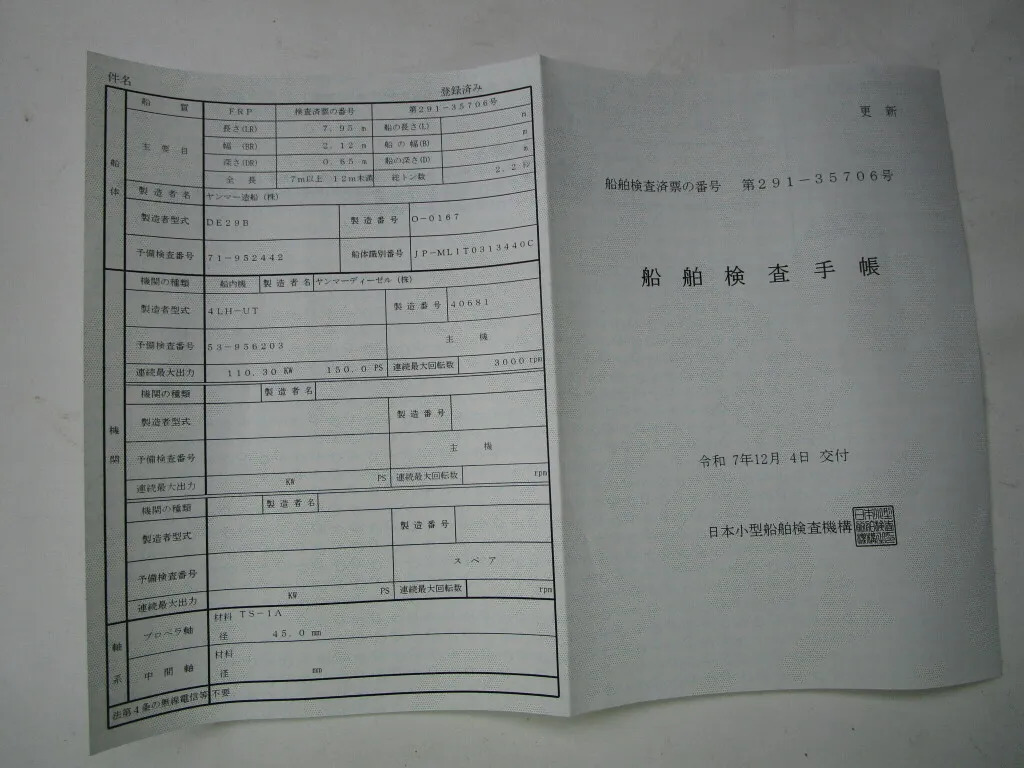 件名
登録済み
船 質 FRP 検査済票の番号 第291-35706号
船体
主要目
長さ(LR) 7.95 m 船の長さ(L) m
幅 (BR) 2.12 m 船の幅(B) m
深さ(DR) 0.65 m 船の深さ(D) m
全長 7m以上 12m未満 総トン数 2.2
製造者名 ヤンマー造船(株)
製造者型式 DE29B 製造番号 0-0167
予備検査番号 71-952442 船体識別番号 JP-ML1T0313440C
機関
機関の種類 船内機 製造者名 ヤンマーディーゼル(株)
製造者型式 4LH-UT 製造番号 40681
予備検査番号 53-956203 主機
連続最大出力 110.30 KW 150.0 PS 連続最大回転数 3000 rpm
機関の種類 製造者名
製造者型式 製造番号
予備検査番号 主機
連続最大出力 KW PS 連続最大回転数 rpm
機関の種類 製造者名
製造者型式 製造番号
予備検査番号 スペア
連続最大出力 KW PS 連続最大回転数 rpm
軸系
プロペラ軸 材料 TS-1A
径 45.0 mm
中間軸 材料
径 mm
法第4条の無線電信等 不要
更新
船舶検査済票の番号 第291-35706号
船舶検査手帳
令和 7年12月 4日 交付
日本小型船舶検査機構